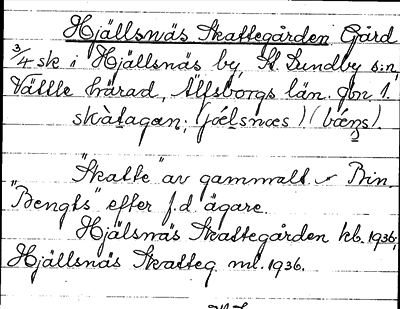 Hjällsnäs Skattegården Gård
3/4 sk i Hjällsnäs by, St. Lundby s:n,
Vättle härad, Älfsborgs län. Jbn 1.
skàtagan; (jǽlsnæs) (bǽŋs).
"Skatte" av gammalt. Bin.
"Bengts" efter f.d. ägare.
Hjälsnäs Skattegården kb. 1936,
Hjällsnäs Skatteg. ml. 1936.